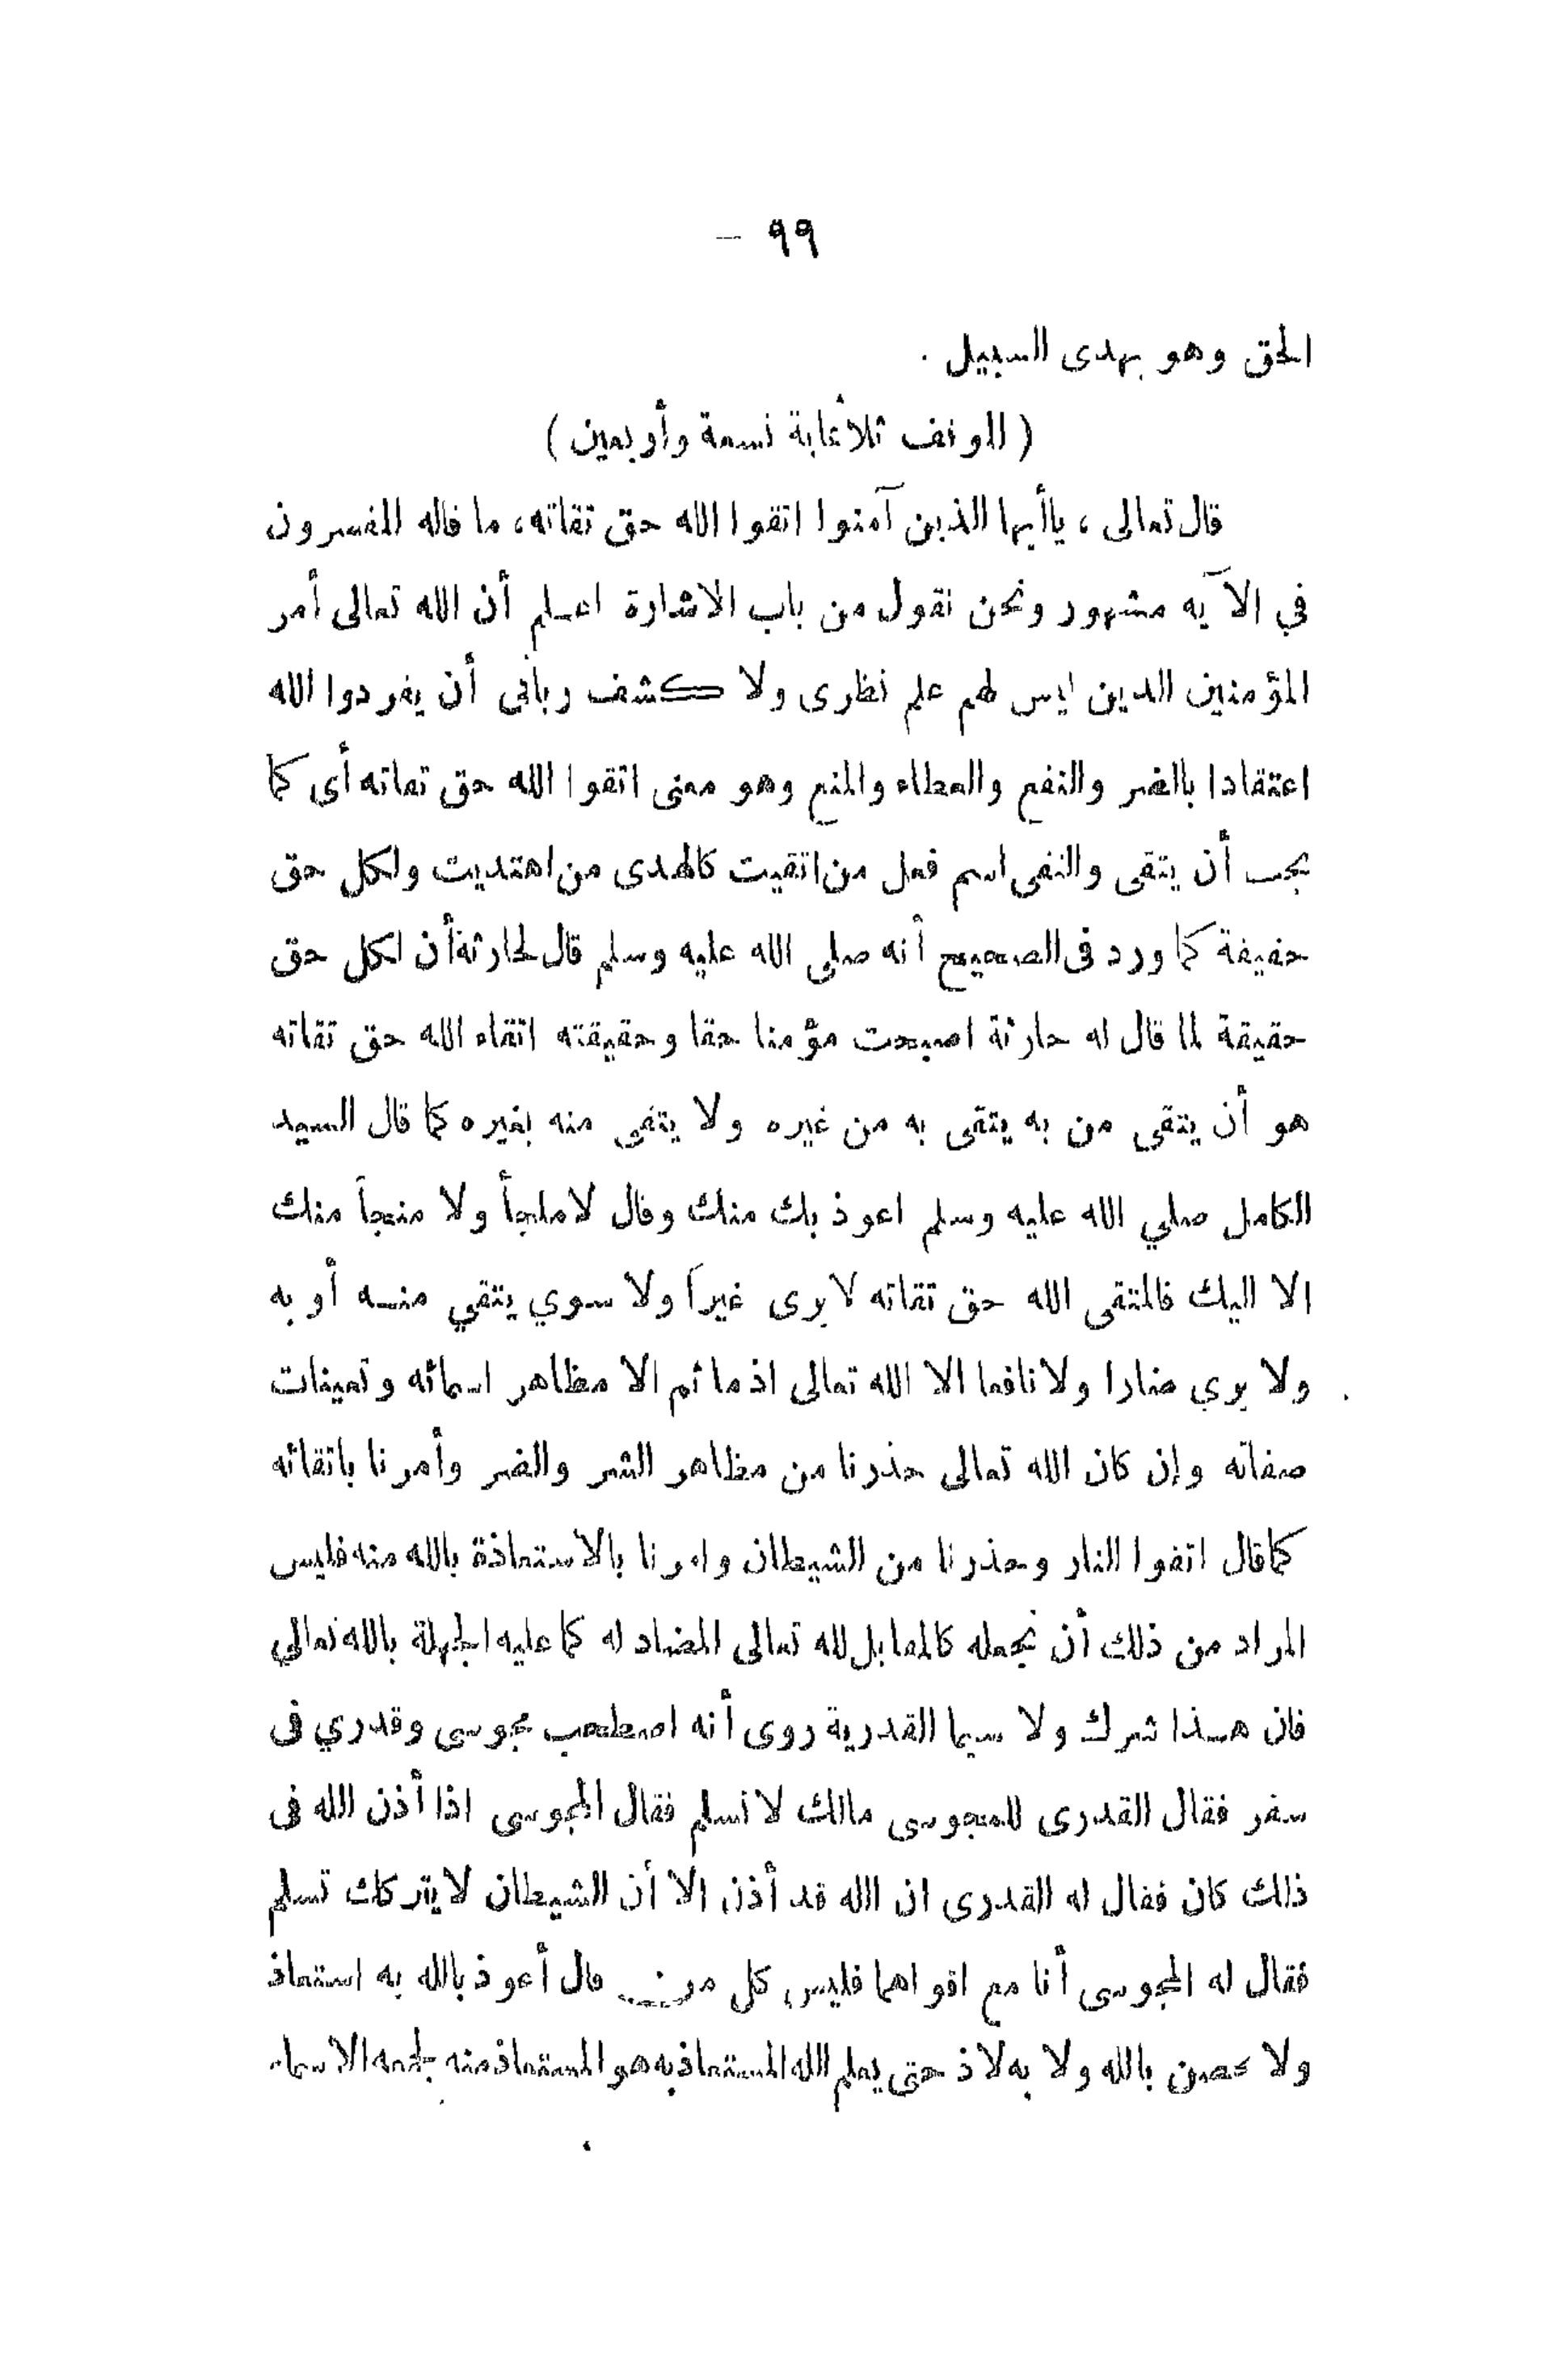 ٩٩ —
الحق وهو يهدى السبيل .
( الموقف ثلاثمائة تسعة وأربعين )
قال تعالى ، ياأيها الذين آمنوا اتقوا الله حق تقاته، ما قاله المفسرون
في الآيه مشهور ونحن نقول من باب الاشارة اعلم أن الله تعالى أمر
المؤمنين الدين ليس لهم علم نظرى ولا كشف ربانى أن يفردوا الله
اعتقادا بالضر والنفع والعطاء والمنع وهو معنى اتقوا الله حق تقاته أى كما
يجب أن يتقى والتقى اسم فعل من اتقيت كالهدى من اهتديت ولكل حق
حقيقة كما ورد فى الصحيح أنه صلى الله عليه وسلم قال لحارثة أن لكل حق
حقيقة لما قال له حارثة اصبحت مؤمنا حقا وحقيقته اتقاء الله حق تقاته
هو أن يتقى من به يتقى به من غيره ولا يتقى منه بغيره كما قال السيد
الكامل صلي الله عليه وسلم اعوذ بك منك وقال لا ملجأ ولا منجأ منك
الا اليك فالمتقى الله حق تقاته لا يرى غيراً ولا سوي يتقي منه أو به
ولا يري ضارا ولا نافعا الا الله تعالى اذ ما ثم الا مظاهر اسمائه وتعينات
صفاته وإن كان الله تعالى حذرنا من مظاهر الشر والضر وأمرنا باتقائه
كما قال اتقوا النار وحذرنا من الشيطان وامرنا بالاستعاذة بالله منه فليس
المراد من ذلك أن نجعله كالمقابل لله تعالى المضاد له كما عليه الجهلة بالله تعالي
فان هذا شرك ولا سيما القدرية روى أنه اصطحب مجوسى وقدري فى
سفر فقال القدرى للمجوسى مالك لا تسلم فقال المجوسى اذا أذن الله فى
ذلك كان فقال له القدرى ان الله قد أذن الا أن الشيطان لا يتركك تسلم
فقال له المجوسى أنا مع اقواهما فليس كل من قال أعوذ بالله به استعاذ
ولا تحصن بالله ولا به لاذ حتى يعلم الله المستعاذ به هو المستعاذ منه لجمعه الاسماء